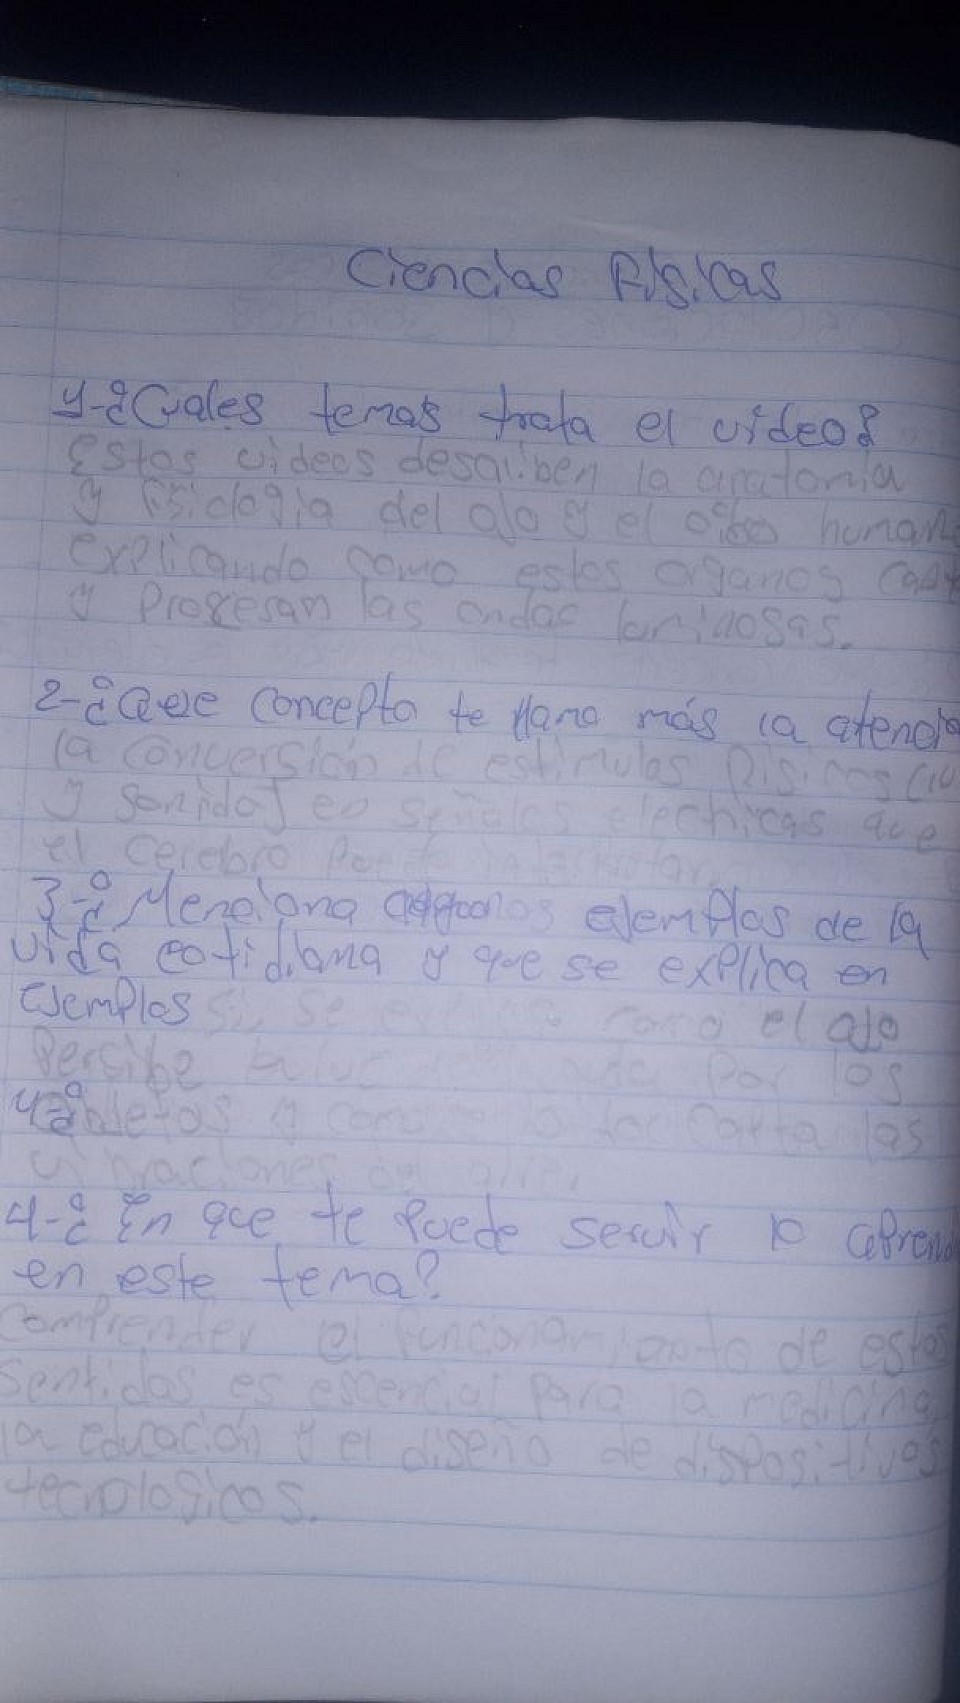 Ciencias Físicas
1-¿Cuales temas trata el video?
Estos videos describen la anatomia
y fisiologia del ojo y el oido human
explicando como estos organos capt
y Procesan las ondas luminosas.
2-¿Que concepto te llamo más la atencio
la conversión de estimulos fisicos (lu
y sonido) en señales electricas que
el cerebro puede interpretar.
3-¿Menciona algunos ejemplos de la
vida cotidiana y que se explica en
ejemplos si, se explica como el ojo
Persibe la luz por los
objetos y como capta las
vibraciones del aire.
4-¿En que te Puede servir lo aprend
en este tema?
Comprender el funcionamiento de estos
sentidos es escencial para la medicina,
la educación y el diseño de dispositivos
tecnologicos.